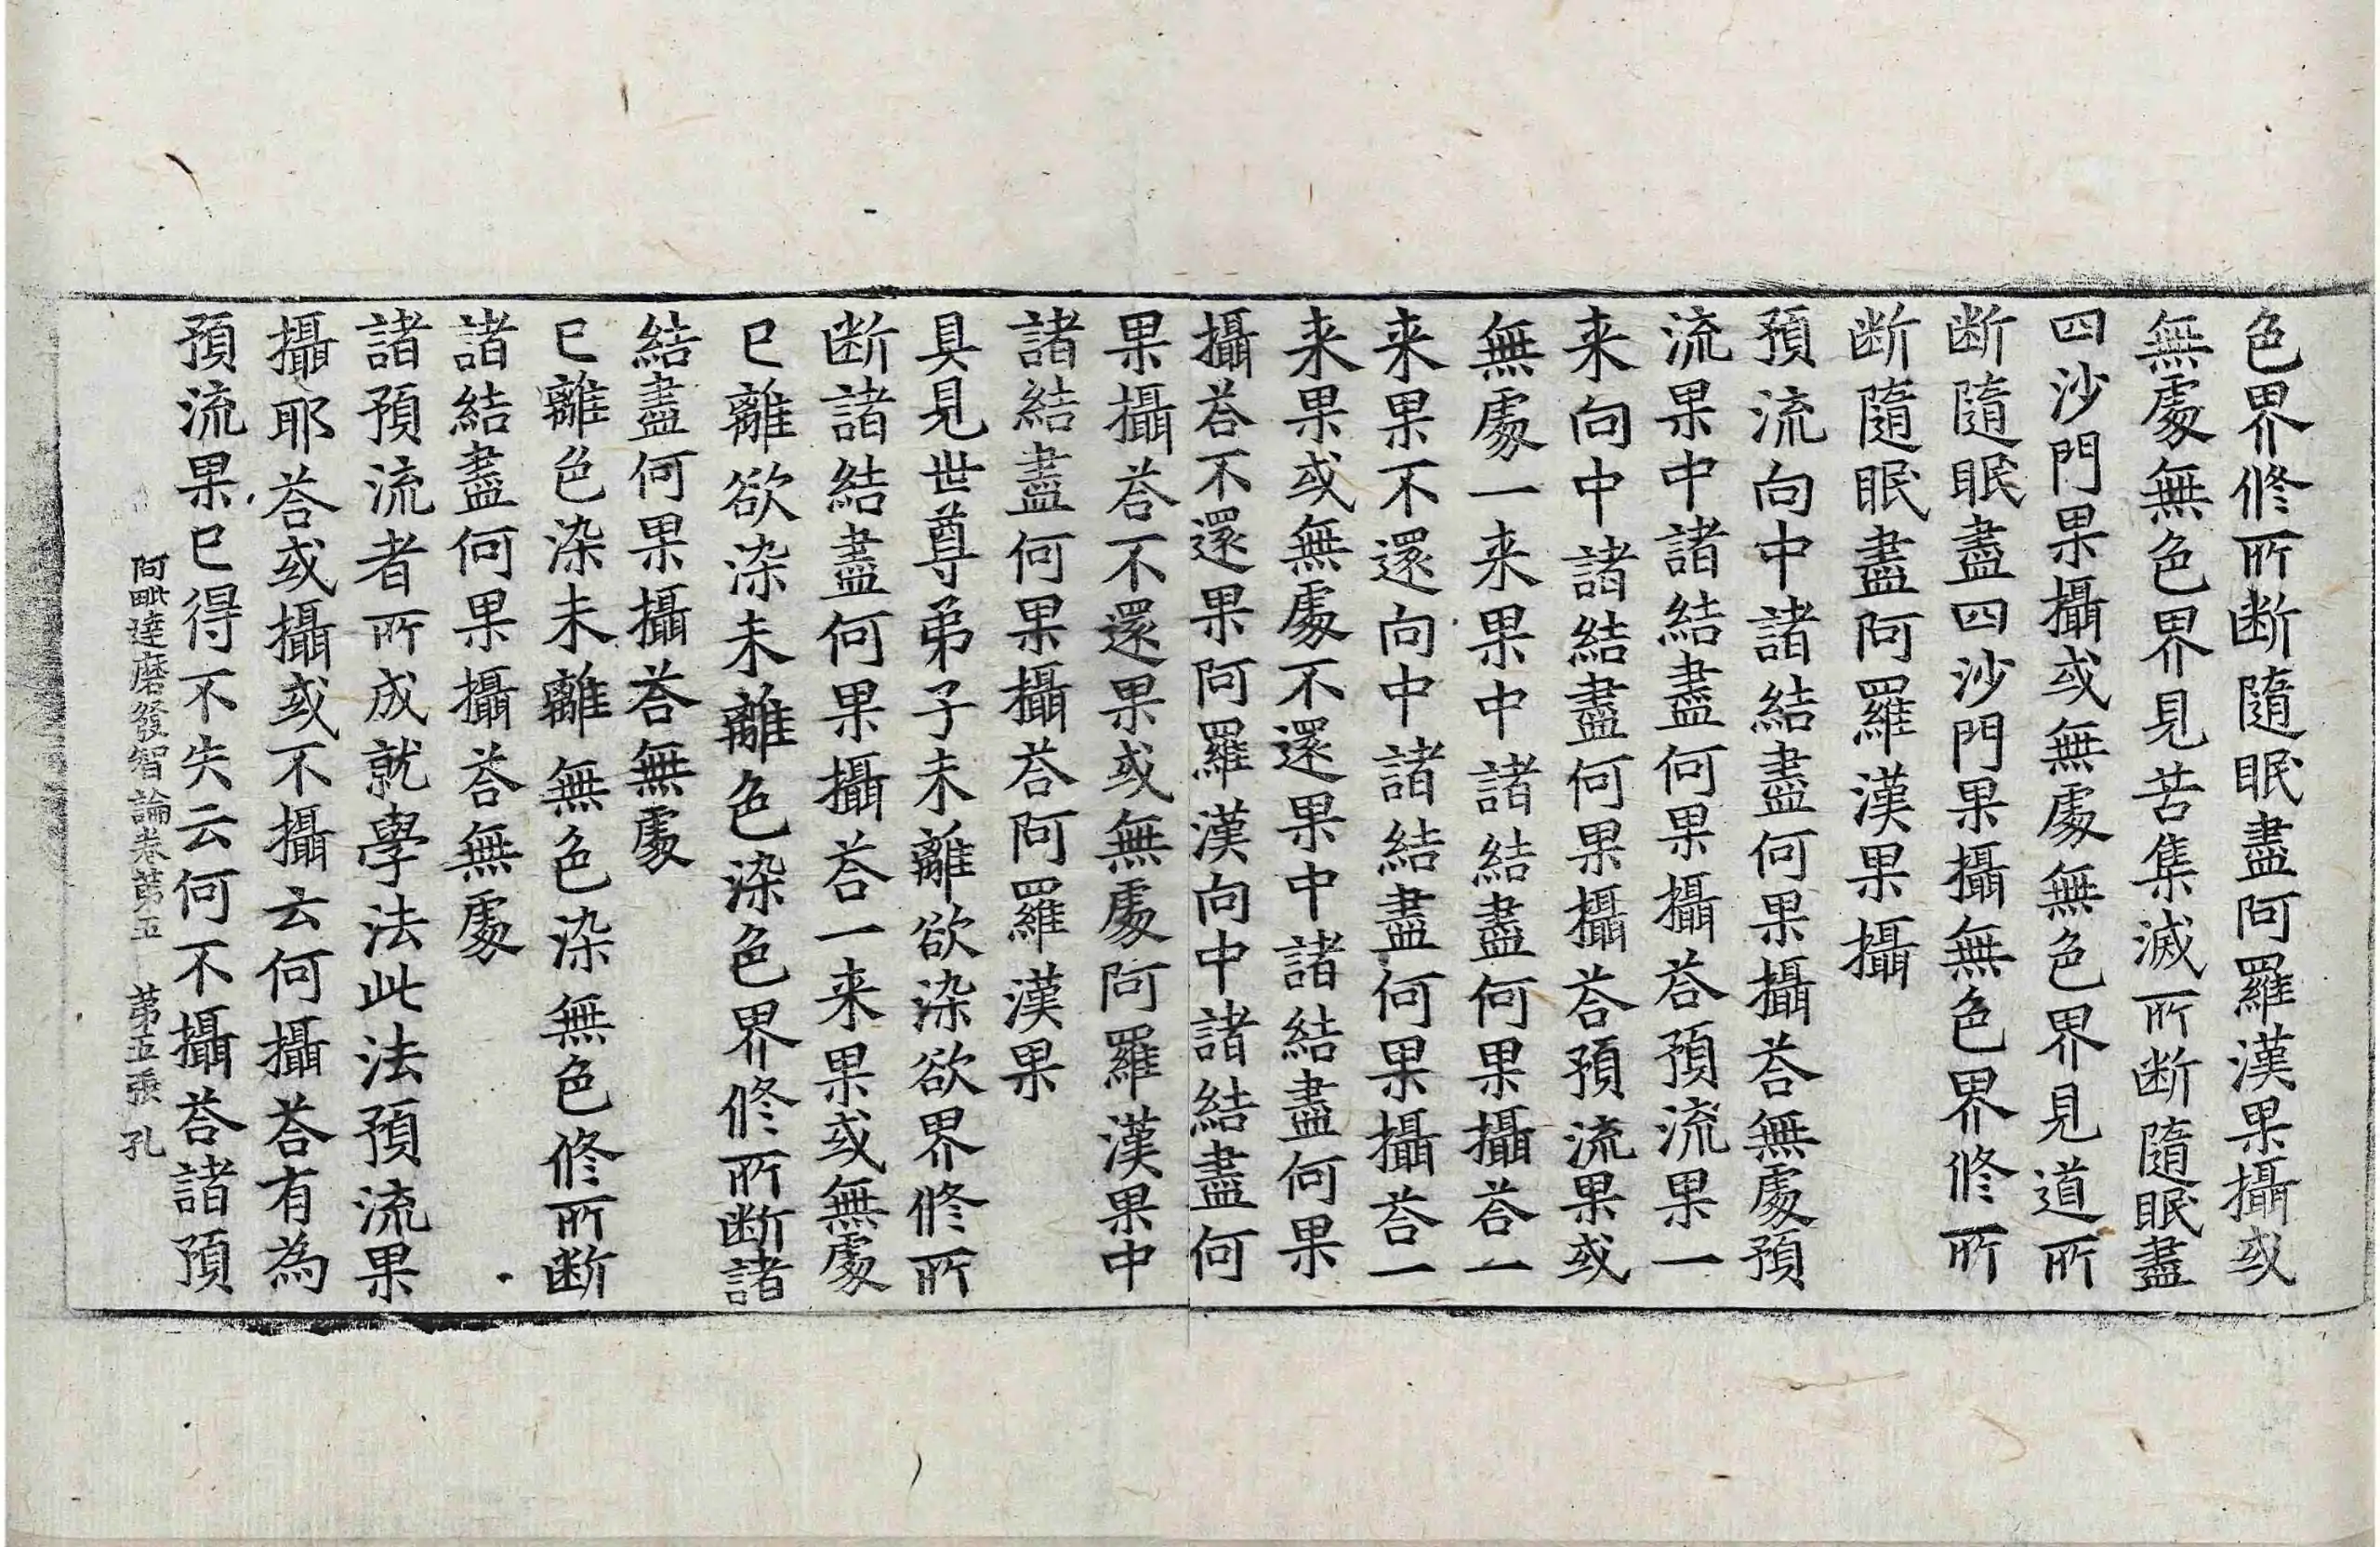 色界修所断隨眠盡阿羅漢果攝或
無處無色界見苦集滅所断隨眠盡
四沙門果攝或無處無色界見道所
断隨眠盡四沙門果攝無色界修所
断隨眠盡阿羅漢果攝
預流向中諸結盡何果攝荅無處預
流果中諸結盡何果攝荅預流果一
来向中諸結盡何果攝荅預流果或
無處一来果中諸結盡何果攝荅一
来果不還向中諸結盡何果攝荅一
来果或無處不還果中諸結盡何果
攝荅不還果阿羅漢向中諸結盡何
果攝荅不還果或無處阿羅漢果中
諸結盡何果攝荅阿羅漢果
具見世尊弟子未離欲染欲界修所
断諸結盡何果攝荅一来果或無處
已離欲染未離色染色界修所断諸
結盡何果攝荅無處
已離色染未離無色染無色修所断
諸結盡何果攝荅無處
諸預流者所成就學法此法預流果
攝耶荅或攝或不攝云何攝荅有為
預流果已得不失云何不攝荅諸預
阿毗達磨發智論卷苐五 苐五張 孔